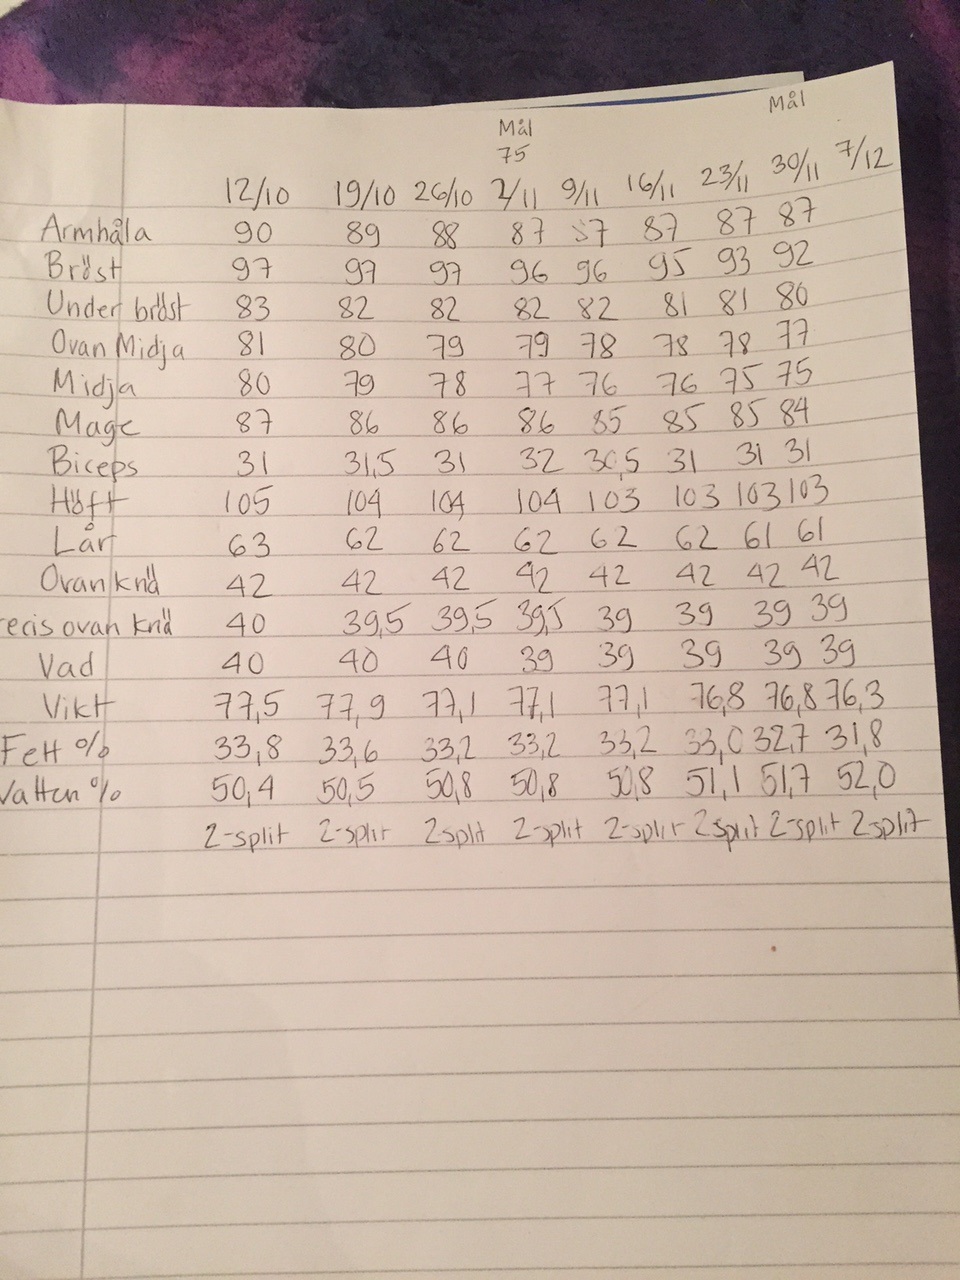 Mål
Mål
75
12/10 19/10 26/10 2/11 9/11 16/11 23/11 30/11 7/12
Armhåla 90 89 88 87 87 87 87 87
Bröst 97 97 97 96 96 95 93 92
Under bröst 83 82 82 82 82 81 81 80
Ovan Midja 81 80 79 79 78 78 78 77
Midja 80 79 78 77 76 76 75 75
Mage 87 86 86 86 85 85 85 84
Biceps 31 31,5 31 32 30,5 31 31 31
Höft 105 104 104 104 103 103 103 103
Lår 63 62 62 62 62 62 61 61
Ovan knä 42 42 42 42 42 42 42 42
recis ovan knä 40 39,5 39,5 39,5 39 39 39 39
Vad 40 40 40 39 39 39 39 39
Vikt 77,5 77,9 77,1 77,1 77,1 76,8 76,8 76,3
Fett % 33,8 33,6 33,2 33,2 33,2 33,0 32,7 31,8
Vatten % 50,4 50,5 50,8 50,8 50,8 51,1 51,7 52,0
2-split 2-split 2split 2-split 2-split 2split 2-split 2split